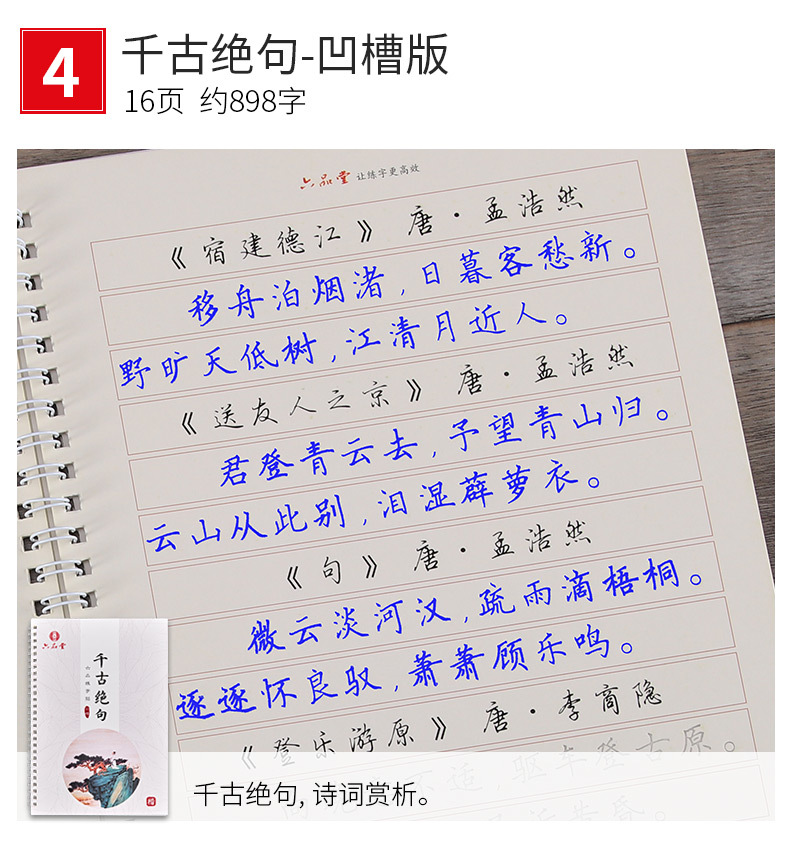 4
千古绝句-凹槽版
16页 约898字
六品堂 让练字更高效
《宿建德江》 唐·孟浩然
移舟泊烟渚,日暮客愁新。
野旷天低树,江清月近人。
《送友人之京》 唐·孟浩然
君登青云去,予望青山归。
云山从此别,泪湿薜萝衣。
《句》 唐·孟浩然
微云淡河汉,疏雨滴梧桐。
逐逐怀良驭,萧萧顾乐鸣。
《登乐游原》 唐·李商隐
适,驱车登古原。
六品堂
千古绝句
千古绝句, 诗词赏析。